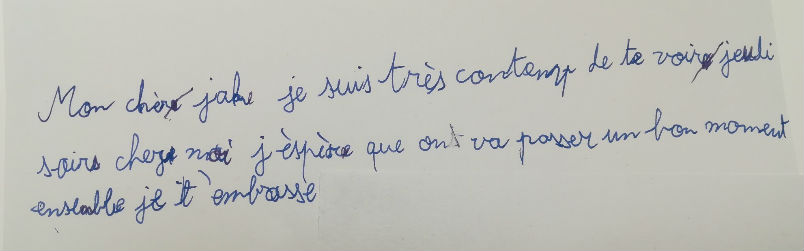 Mon chèr jake je suis très contemp de te voir jeudi
soire chez moi j'éspère que ont va passer un bon moment
ensemble je t'embrasse